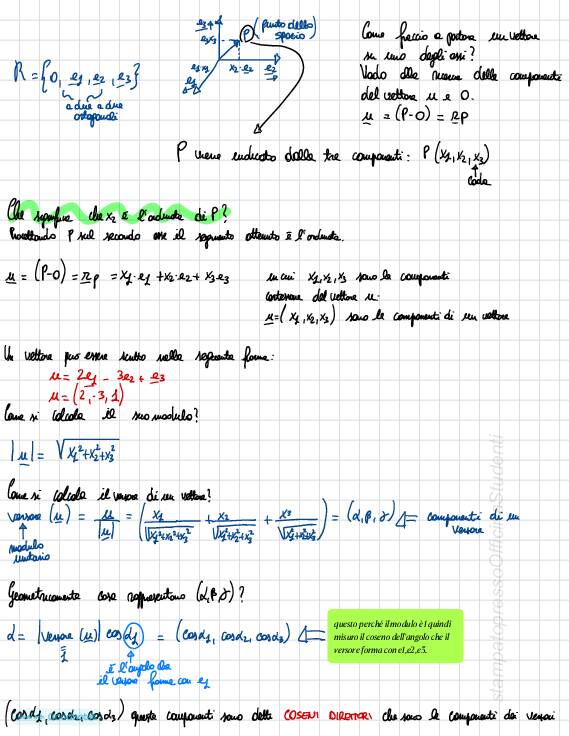 R = {0, e1, e2, e3}
a due a due
ortogonali
e3
x3·e3
P (punto dello
spazio)
e1·x1
x2·e2
e2
e1
Come faccio a portare un vettore
su uno degli assi?
Vado alla ricerca delle componenti
del vettore u e O.
u = (P-O) = rP
P viene indicato dalle tre componenti: P(x1, x2, x3)
Che significa che x2 è l'ordinata di P?
Proiettando P sul secondo asse il segmento ottenuto è l'ordinata.
u = (P-O) = rP = x1·e1 + x2·e2 + x3·e3
in cui x1, x2, x3 sono le componenti
cartesiane del vettore u:
u = (x1, x2, x3) sono le componenti di un vettore
Un vettore può essere scritto nella seguente forma:
u = 2e1 - 3e2 + e3
u = (2, -3, 1)
Come si calcola il suo modulo?
|u| = √x1²+x2²+x3²
Come si calcola il versore di un vettore?
versore (u) = u/|u| = (x1/√x1²+x2²+x3² + x2/√x1²+x2²+x3² + x3/√x1²+x2²+x3²) = (α, β, γ) ⇐ componenti di un
versore
modulo
unitario
Geometricamente cosa rappresentano (α, β, γ)?
α = |versore (u)| cos α1 = (cosα1, cosα2, cosα3) ⇐
1
è l'angolo che
il versore forma con e1
questo perché il modulo è 1 quindi
misuro il coseno dell'angolo che il
versore forma con e1,e2,e3.
(cosα1, cosα2, cosα3) queste componenti sono dette COSENI DIRETTORI che sono le componenti dei versori
stampatopressoOfficinaStudenti